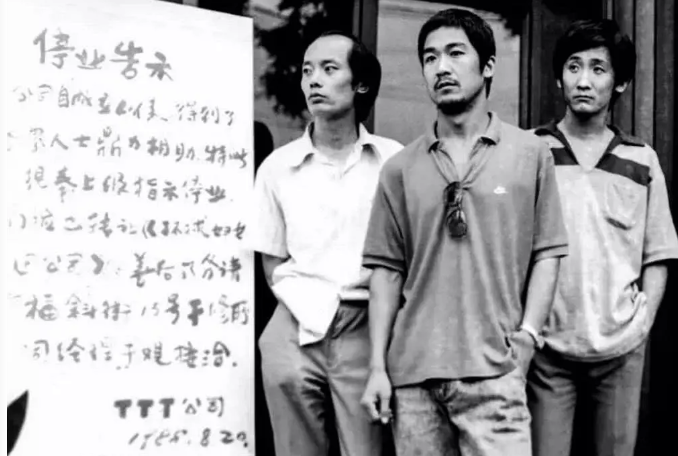 停业告示
公司自成立以来,得到了
各界人士鼎力相助,特此
现奉上级指示停业.
门市已转让《环球妇女
公司》:善后 分请
福斜街15号于
司经理于观接洽.
TTT公司
1985.8.20.